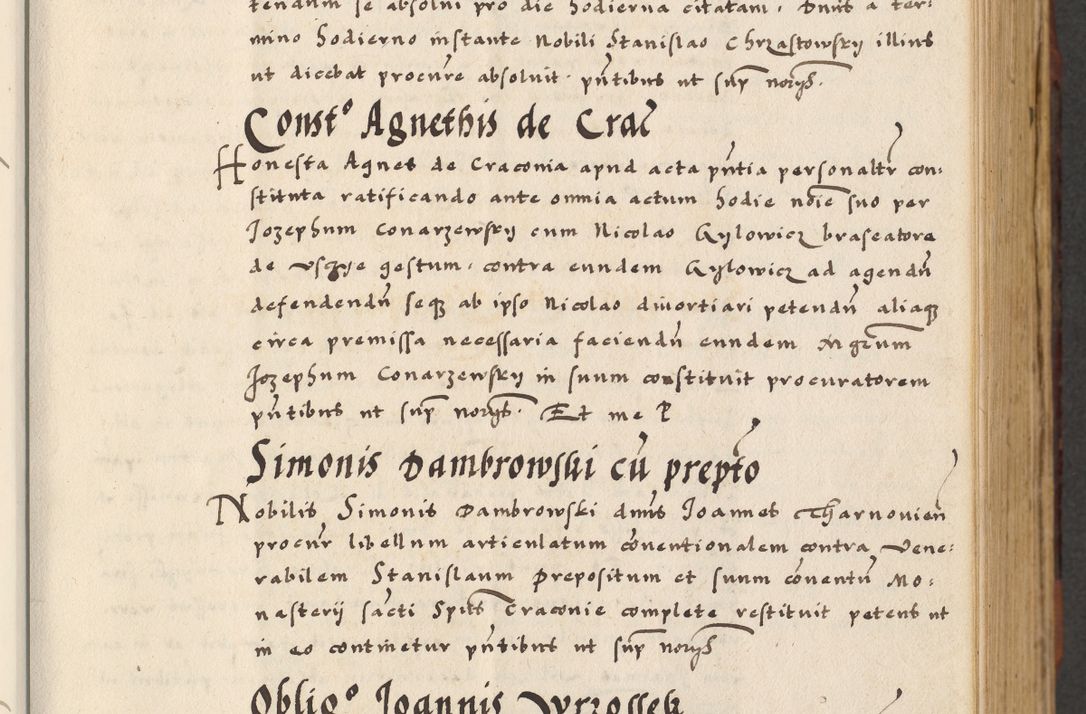 tendum se absolui pro die hodierna citatam. Dnus a ter:
mino hodierno instante Nobili Stanislao Chrzastowsky illius
ut dicebat procure absoluit. pñtibus ut sup norȝs.
Constº Agnethis de Crac̃
Honesta Agnes de Craconia apud acta pñtia personaltr con:
stituta ratificando ante omnia actum hodie nõie suo per
Jozephum Conarzewsky cum Nicolao Gylowicz braseatore
de gestum, contra eundem Gylowicz ad agendũ
defendendũ seq ab ipso Nicolao diuortiari petendũ aliaq
circa premissa necessaria faciendũ eundem Mgrum
Jozephum Conarzewsky in suum constituit procuratorem
pñtibus ut sup norȝs. Et me P
Simonis Dambrowski cũ prepto
Nobilis Simonis Dambrowski dnus Joannes Tharnouien
procur libellum articulatum cõuentionalem contra Vene:
rabilem Stanislaum Prepositum et suum cõuentũ Mo:
nasterij sãcti Spits Craconie complete restituit petens ut
in eo continetur pñtibus ut sup norȝs
Obligº Joannis Wrzossek